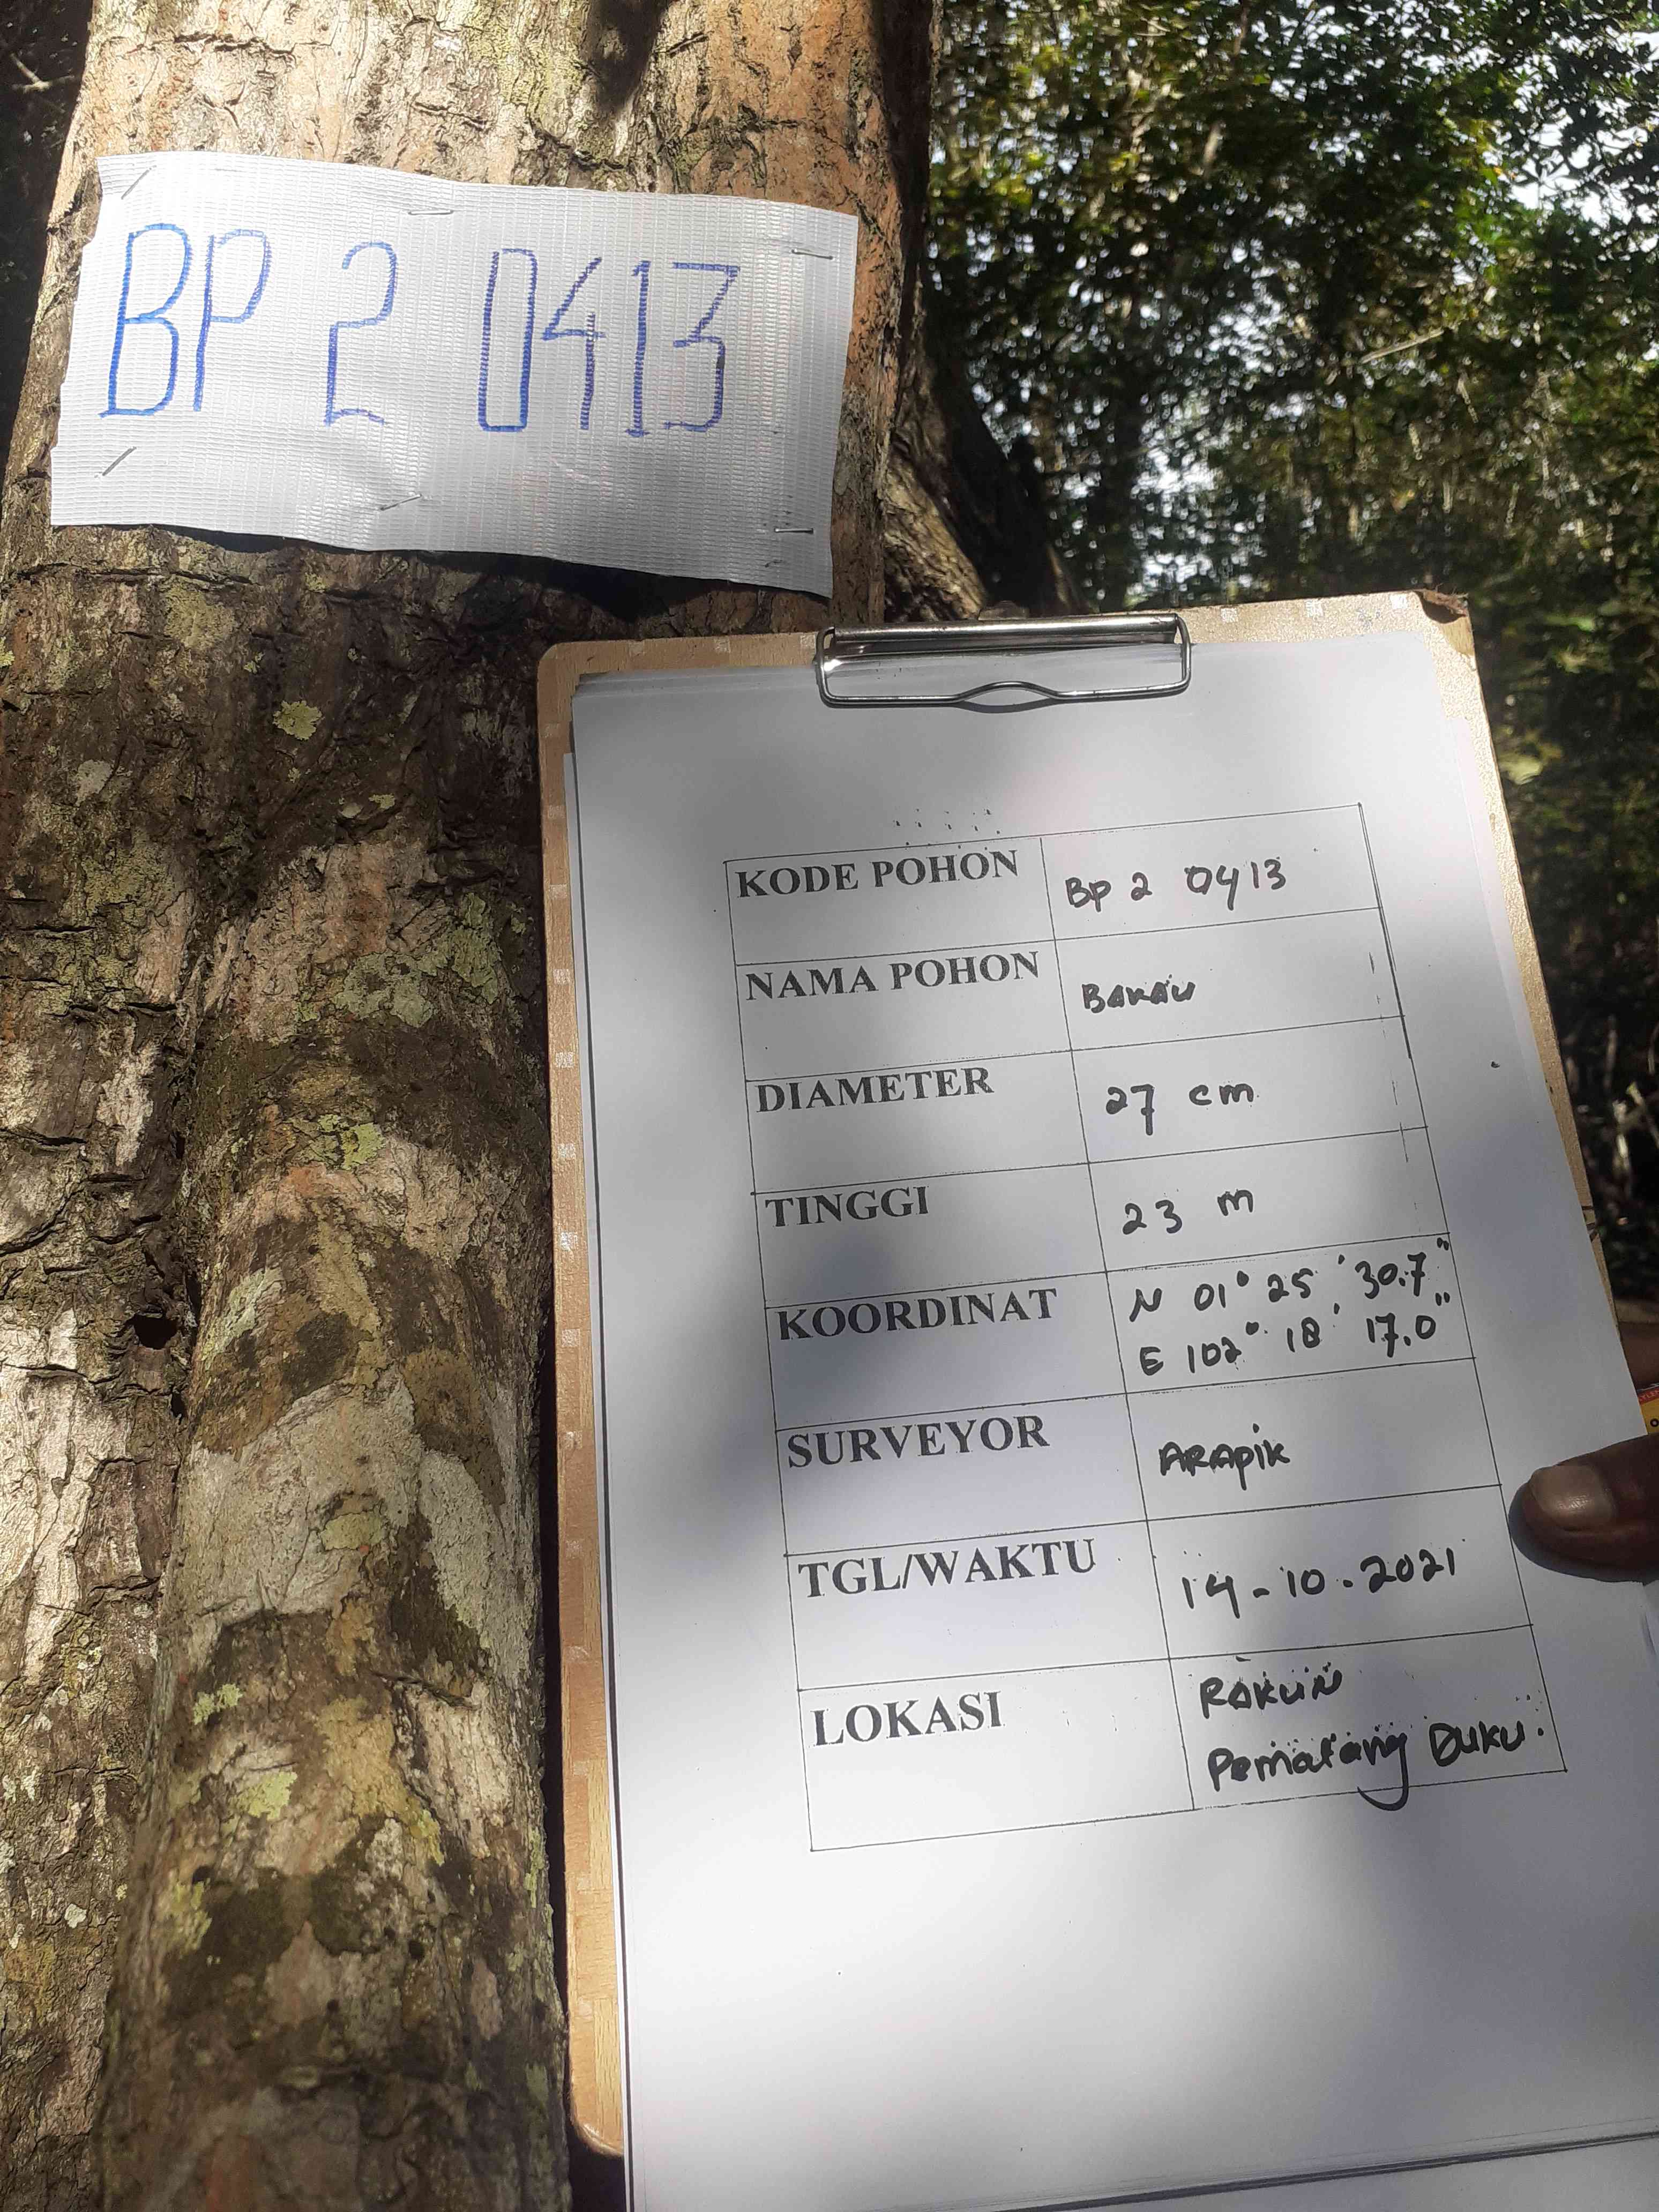 BP 2 0413
KODE POHON BP 2 0413
NAMA POHON BAKAU
DIAMETER 27 cm
TINGGI 23 m
KOORDINAT N 01° 25 ' 30.7"
E 102° 18 ' 17.0"
SURVEYOR ARAPIK
TGL/WAKTU 14-10.2021
LOKASI RAKUN
Pematang Duku.